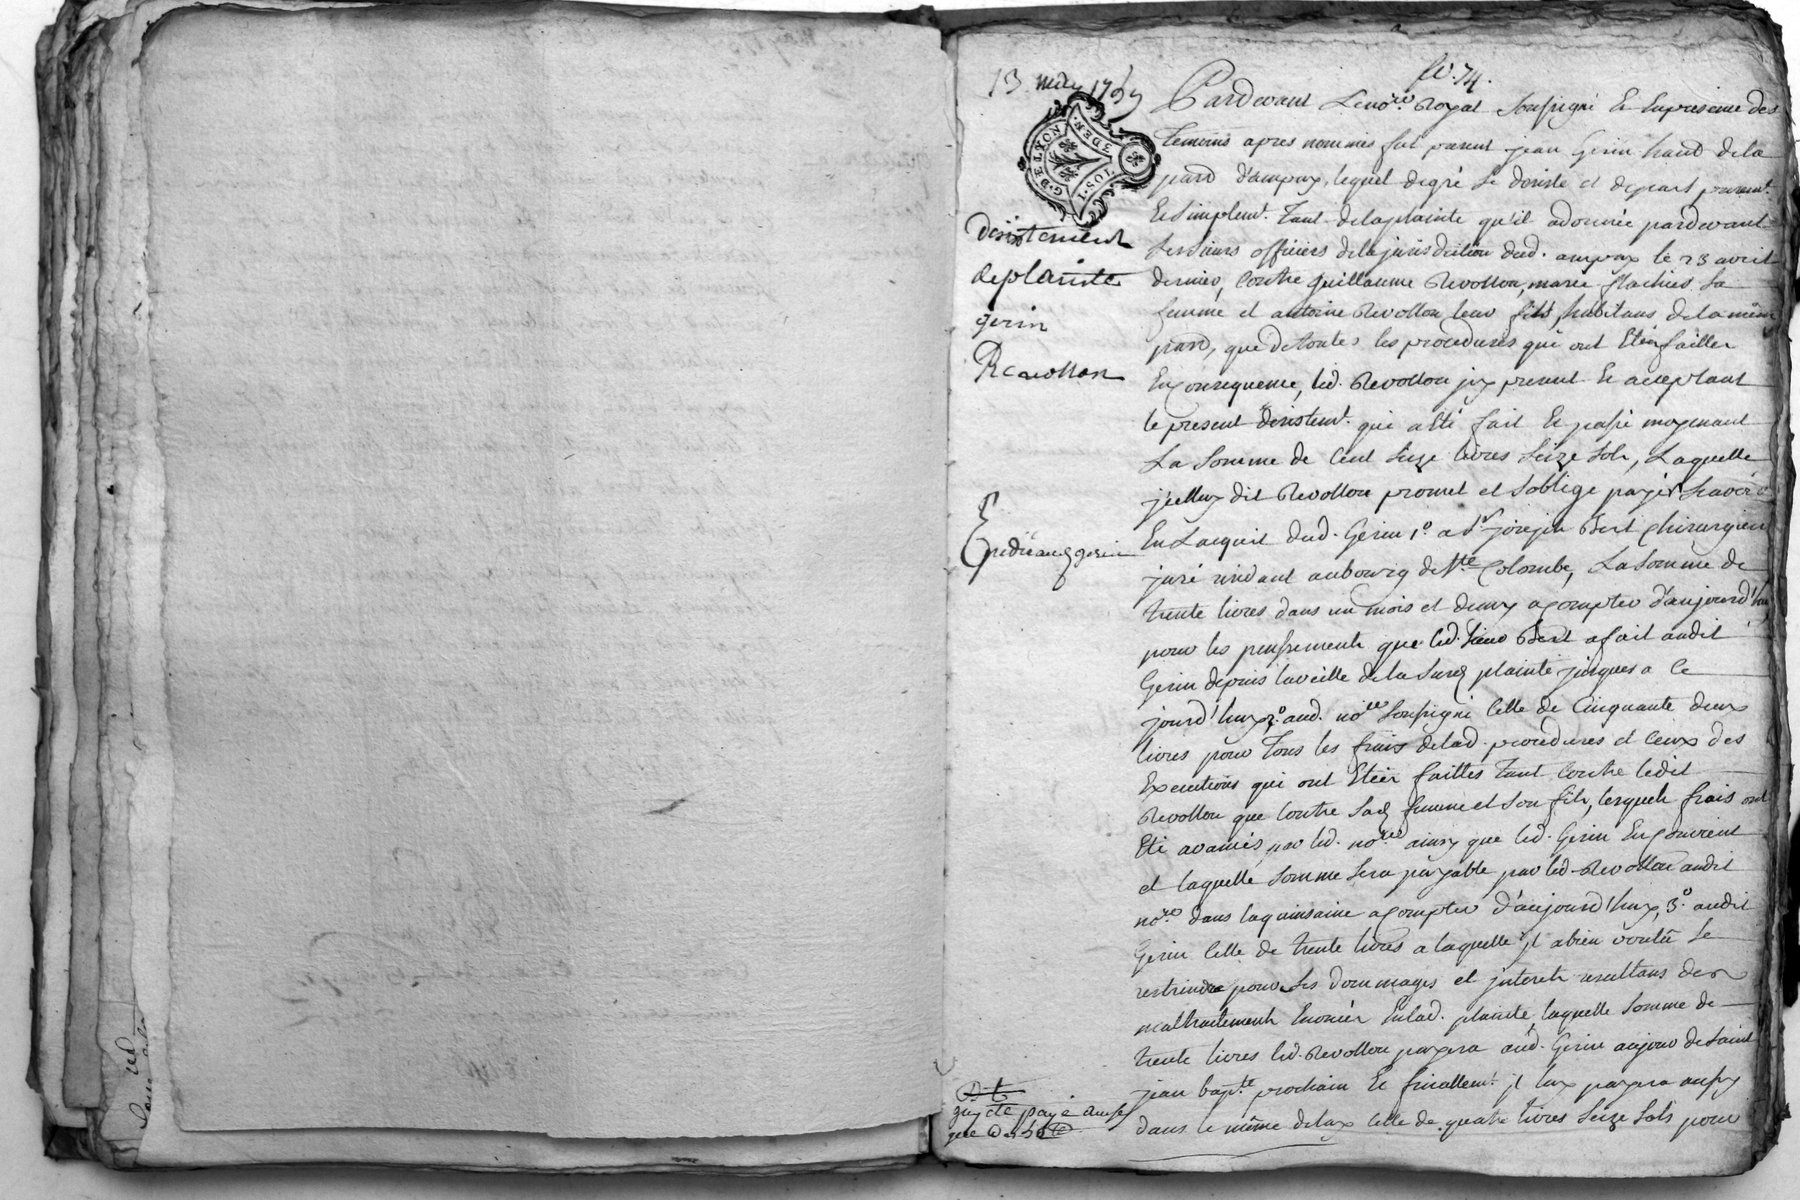 fo. 74.
13 may 1759
G. DE LYON
3 DEN.
1. SOL
desistement
de plainte
gerin
Revollon
Expedié aud gerin
Pardevant Le no.re Royal soussigné Et En presence des
Temoins apres nommés fut present jean Gerin hab.t de la
parr.e d'ampuy, lequel de gré se desiste et depart purem.t
Et simplem.t Tant de la plainte qu'il a donnée pardevant
Les sieurs officiers de la jurisdiction dud. ampuy le 23 avril
dernier, Contre Guillaume Revollon, marie flachier Sa
femme et antoine Revollon leur fils, habitans de la même
parr.e, que de toutes les procedures qui ont Etéer faittes
En Consequence, led. Revollon jcy present Et acceptant
le present desistem.t qui a Eté fait Et passé moyenant
La Somme de Cent Seize livres Seize Sols, Laquelle
jcelluy dit Revollon promet et s'oblige payér sçavoir
En Lacquit dud. Gerin 1.o a s.r joseph Bert Chirurgien
juré residant au bourg de S.te Colombe, La Somme de
trente livres dans un mois et demy a Compter d'aujourd'huy
pour les pensements que led. sieur Bert a fait audit
Gerin depuis la veille de la Sus.d plainte jusques a Ce
jourd'huy, 2.o aud. no.re Soussigné Celle de Cinquante deux
livres pour Tous les frais de lad. procedures et Ceux des
Executions qui ont Etéer faittes tant Contre ledit
Revollon que Contre Sad. femme et Son fils, lesquels frais ont
Eté avancés par led. no.re ainsy que led. Gerin En Convient
et laquelle Somme Sera payable par led. Revollon audit
no.re dans la quinsaine a Compter d'aujourd'huy, 3.o audit
Gerin Celle de trente livres a laquelle jl a bien voulû Se
restreindre pour Ses dommages et jnterets resultans des
maltraitements Enoncér En lad. plainte, laquelle Somme de
trente livres led. Revollon payera aud. Gerin au jour de Saint
jean bap.te prochain Et finallem.t jl luy payera aussy
dans le même delay Celle de quatre livres Seize Sols pour